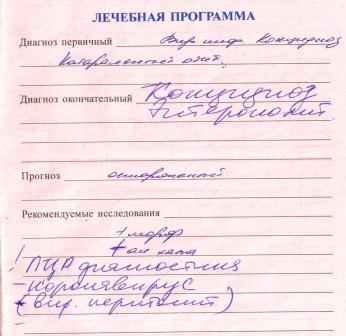 ЛЕЧЕБНАЯ ПРОГРАММА
Диагноз первичный Вир. инф. Кокцидиоз
Катаральный отит.
Диагноз окончательный Кокцидиоз
Энтероколит.
Прогноз осторожный
Рекомендуемые исследования
+ морф
+ ан кала
! ПЦР диагностика
- коронавирус
(вир. перитонит)